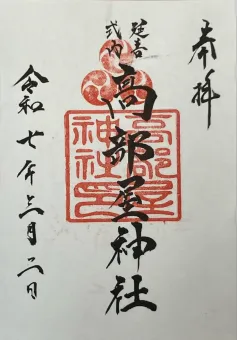 奉拝
延喜
式内
高部屋神社
高部屋
神社印
令和七年三月二日